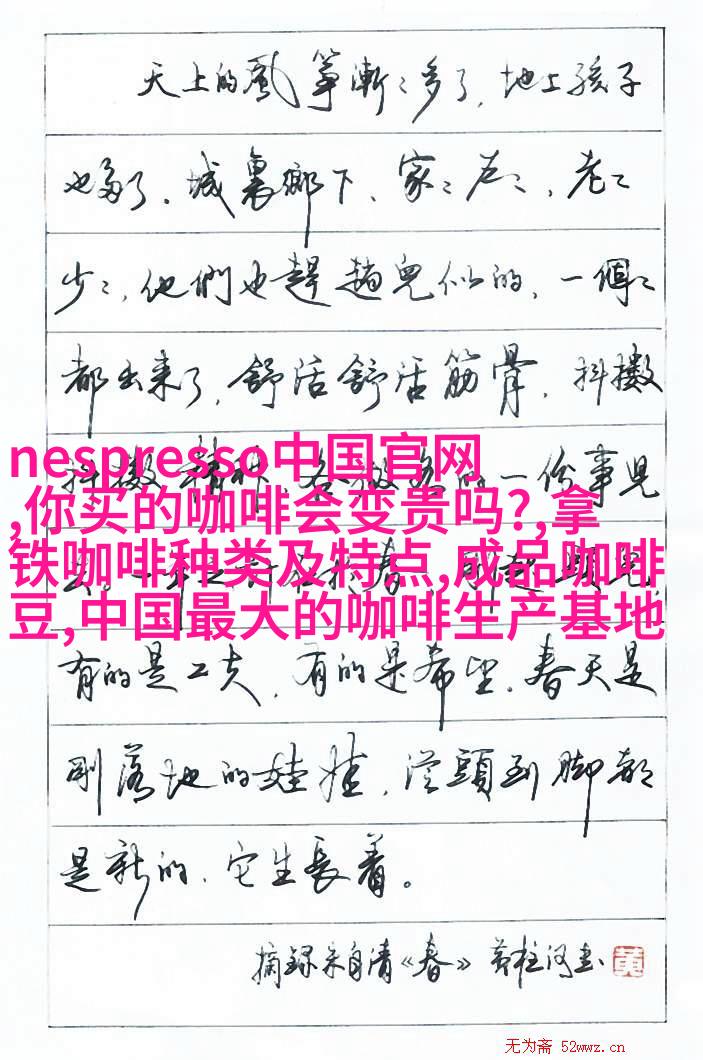 天上的風筝漸〻多了，地上孩子
也多了。城裏鄉下，家〻户〻，老〻
少〻，他們也趕趟兒似的，一個〻
都出来了，舒活舒活筋骨，抖擻
抖擻精神，各做各的一份事兒
nespresso中国官网
,你买的咖啡会变贵吗?,拿
铁咖啡种类及特点,成品咖啡
豆,中国最大的咖啡生产基地
有的是工夫，有的是希望。春天是
剛落地的娃娃，從頭到脚都
是新的，它生長着。
摘録朱自清《春》
黄
无为斋 52wwz.cn